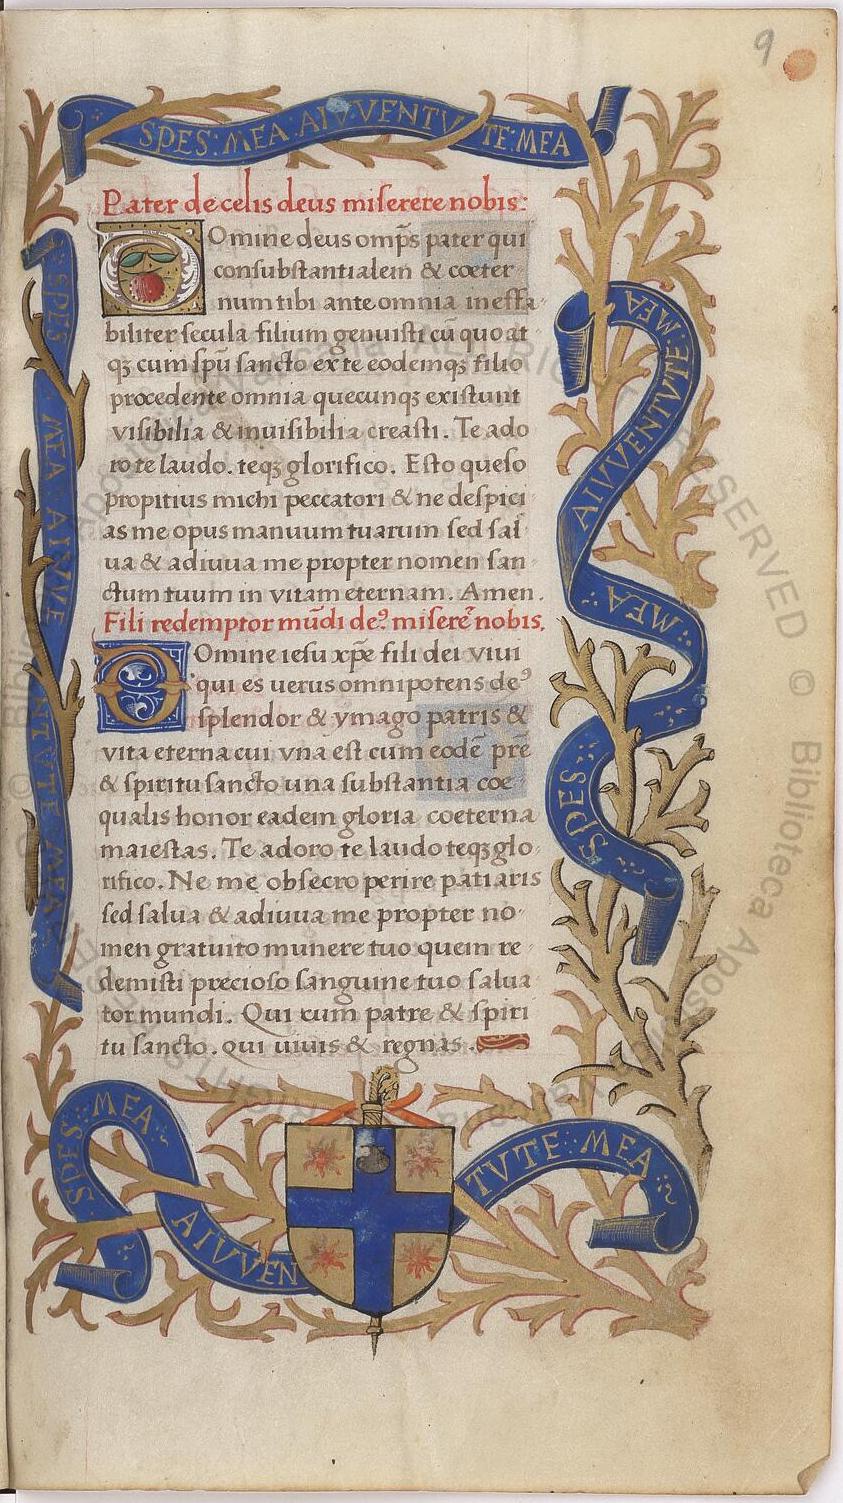 9
SPES: MEA AIVVENTVTE MEA
Pater de celis deus miserere nobis:
Domine deus omp̄s pater qui
consubstantialem & coeter
num tibi ante omnia ineffa
biliter secula filium genuisti cū quo at
qꝫ cum spū sancto ex te eodemqꝫ filio
procedente omnia quecunqꝫ existunt
visibilia & inuisibilia creasti. Te ado
ro te laudo. teqꝫ glorifico. Esto queso
propitius michi peccatori & ne despici
as me opus manuum tuarum sed sal
ua & adiuua me propter nomen san
ctum tuum in vitam eternam. Amen.
Fili redemptor mūdi deꝰ miserē nobis.
Domine iesu xp̄e fili dei viui
qui es uerus omnipotens deꝰ
splendor & ymago patris &
vita eterna cui vna est cum eodē prē
& spiritu sancto una substantia coe
qualis honor eadem gloria coeterna
maiestas. Te adoro te laudo teqꝫ glo
rifico. Ne me obsecro perire patiaris
sed salua & adiuua me propter no
men gratuito munere tuo quem re
demisti precioso sanguine tuo salua
tor mundi. Qui cum patre & spiri
tu sancto. qui uiuis & regnas.
SPES MEA AIVVENTVTE MEA
SPES: MEA: AIVVENTVTE: MEA
SPES: MEA: AIVVENTVTE: MEA
© Biblioteca Apostolica Vaticana ALL RIGHTS RESERVED